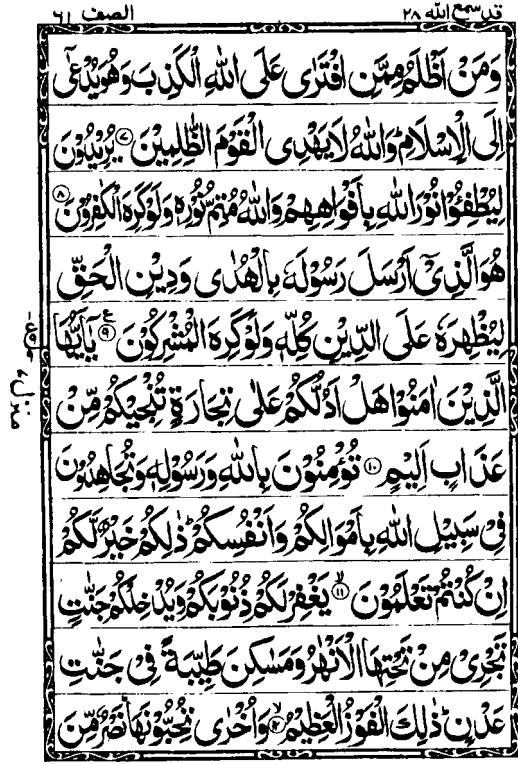 قد سمع الله ۲۸
الصف ۶۱
وَمَنْ اَظْلَمُ مِمَّنِ افْتَرٰى عَلَى اللّٰهِ الْكَذِبَ وَهُوَ يُدْعٰٓى
اِلَى الْاِسْلَامِ ؕ وَاللّٰهُ لَا يَهْدِى الْقَوْمَ الظّٰلِمِيْنَ ۷ يُرِيْدُوْنَ
لِيُطْفِـُٔوْا نُوْرَ اللّٰهِ بِاَفْوَاهِهِمْ وَاللّٰهُ مُتِمُّ نُوْرِهٖ وَلَوْ كَرِهَ الْكٰفِرُوْنَ ۸
هُوَ الَّذِىْٓ اَرْسَلَ رَسُوْلَهٗ بِالْهُدٰى وَدِيْنِ الْحَقِّ
لِيُظْهِرَهٗ عَلَى الدِّيْنِ كُلِّهٖ وَلَوْ كَرِهَ الْمُشْرِكُوْنَ ۹ ع يٰٓاَيُّهَا
الَّذِيْنَ اٰمَنُوْا هَلْ اَدُلُّكُمْ عَلٰى تِجَارَةٍ تُنْجِيْكُمْ مِّنْ
عَذَابٍ اَلِيْمٍ ۱۰ تُؤْمِنُوْنَ بِاللّٰهِ وَرَسُوْلِهٖ وَتُجَاهِدُوْنَ
فِىْ سَبِيْلِ اللّٰهِ بِاَمْوَالِكُمْ وَاَنْفُسِكُمْ ؕ ذٰلِكُمْ خَيْرٌ لَّكُمْ
اِنْ كُنْتُمْ تَعْلَمُوْنَ ۱۱ يَغْفِرْ لَكُمْ ذُنُوْبَكُمْ وَيُدْخِلْكُمْ جَنّٰتٍ
تَجْرِىْ مِنْ تَحْتِهَا الْاَنْهٰرُ وَمَسٰكِنَ طَيِّبَةً فِىْ جَنّٰتِ
عَدْنٍ ؕ ذٰلِكَ الْفَوْزُ الْعَظِيْمُ ۱۲ وَاُخْرٰى تُحِبُّوْنَهَا ؕ نَصْرٌ مِّنَ